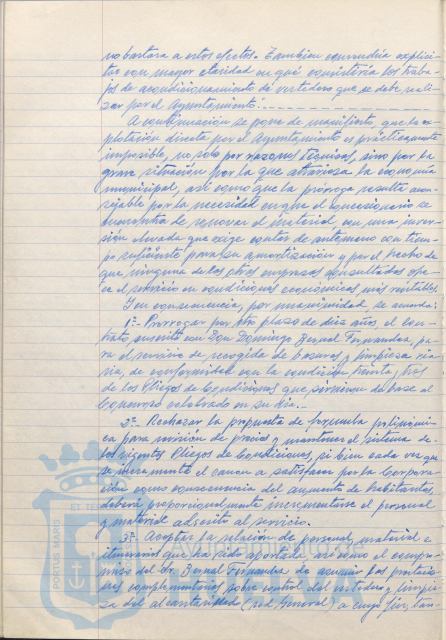 no bastara a estos efectos. Tambien convendria explici-
tar con mayor claridad en qué consistiría los traba-
jos de acondicionamiento de vertedero que se debe reali-
zar por el Ayuntamiento.
A continuación se pone de manifiesto, que la ex-
plotación directa por el Ayuntamiento es prácticamente
imposible, no solo por razones técnicas, sino por la
grave situación por la que atraviesa la economía
municipal, así como que la prórroga resulta acon-
sejable por la necesidad en que el concesionario se
encuentra de renovar el material, con una inver-
sión elevada que exige contar de antemano con tiem-
po suficiente para su amortización y por el hecho de
que ninguna de las otras empresas consultadas ofre-
ce el servicio en condiciones económicas más rentables.
Y en consecuencia, por unanimidad, se acuerda:
1º.- Prorrogar por otro plazo de diez años el con-
trato suscrito con Don Domingo Bernal Fernandez, pa-
ra el servicio de recogida de basuras y limpieza via-
ria, de conformidad con la condición treinta y tres
de los Pliegos de Condiciones que sirvieron de base al
Concurso celebrado en su día.
2º.- Rechazar la propuesta de fórmula polinómi-
ca para revisión de precios y mantener el sistema de
los vigentes Pliegos de Condiciones, si bien cada vez que
se incremente el canon a satisfacer por la Corpora-
ción como consecuencia del aumento de habitantes,
deberá proporcionalmente incrementarse el personal
y material adscrito al servicio.
3º.- Aceptar la relación de personal, material e
itinerarios que ha sido aportada así como el compro-
miso del Sr. Bernal Fernandez de asumir las prestacio-
nes complementarias sobre control del vertedero y limpie-
za del alcantarillado (red General) a cuyo fin, tan-
PORTUS MARIS
ET TE